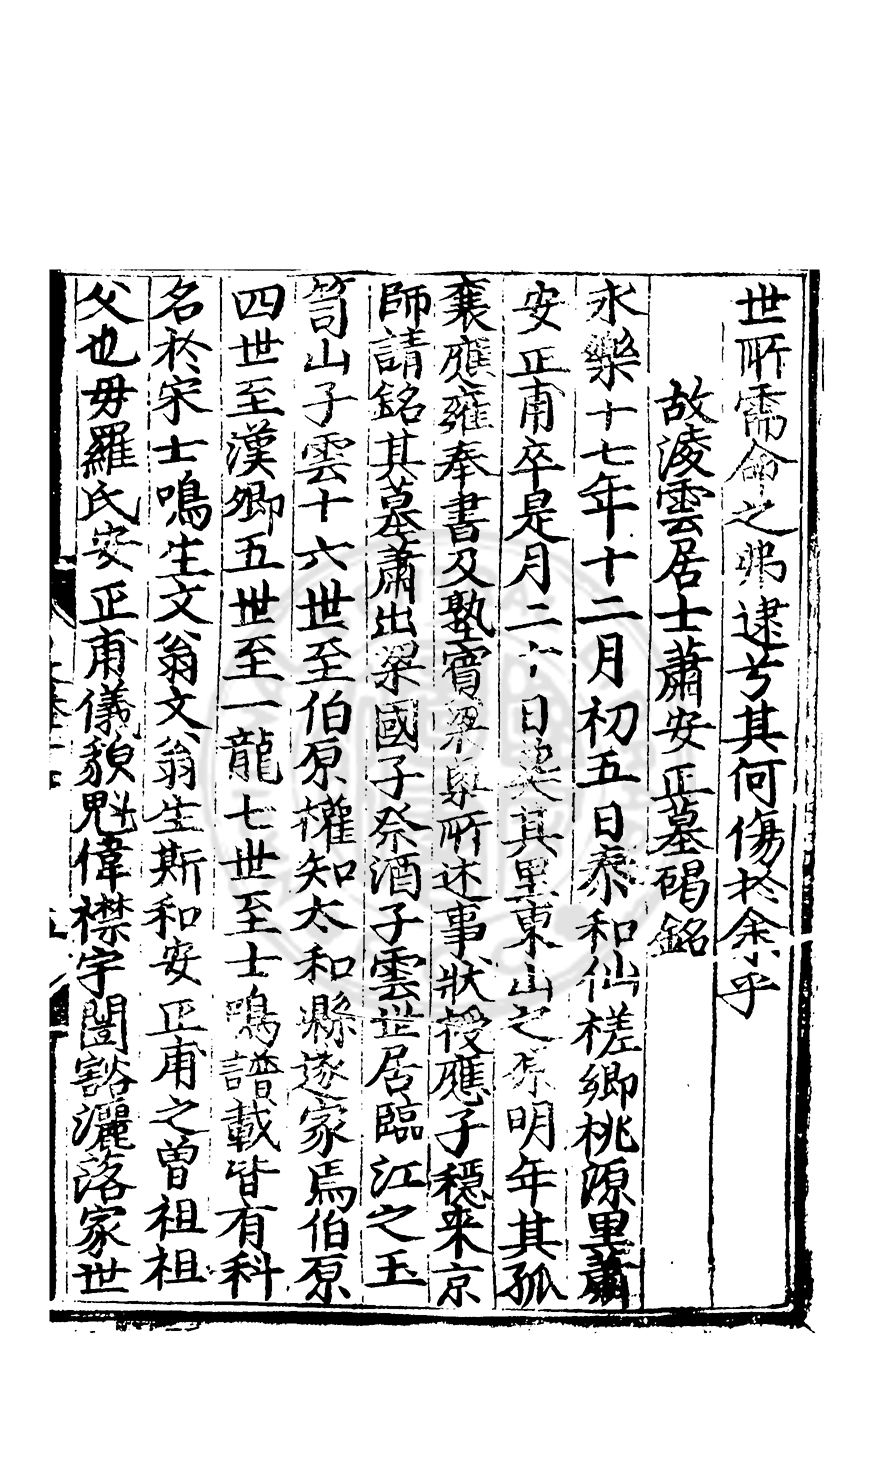 世所需命之弗逮兮其何傷於余乎
故淩雲居士蕭安正墓碣銘
永樂十七年十二月初五日泰和仙槎鄉桃源里蕭
安正甫卒是月二十日塟其里東山之原明年其孤
襄應雍奉書及塾賓梁臬所述事狀授應子穩来京
師請銘其墓蕭出梁國子祭酒子雲世居臨江之玉
笥山子雲十六世至伯原權知太和縣遂家焉伯原
四世至漢卿五世至一龍七世至士鳴譜載皆有科
名於宋士鳴生文翁文翁生斯和安正甫之曽祖祖
父也毋羅氏安正甫儀貌魁偉襟宇闓豁灑落家世